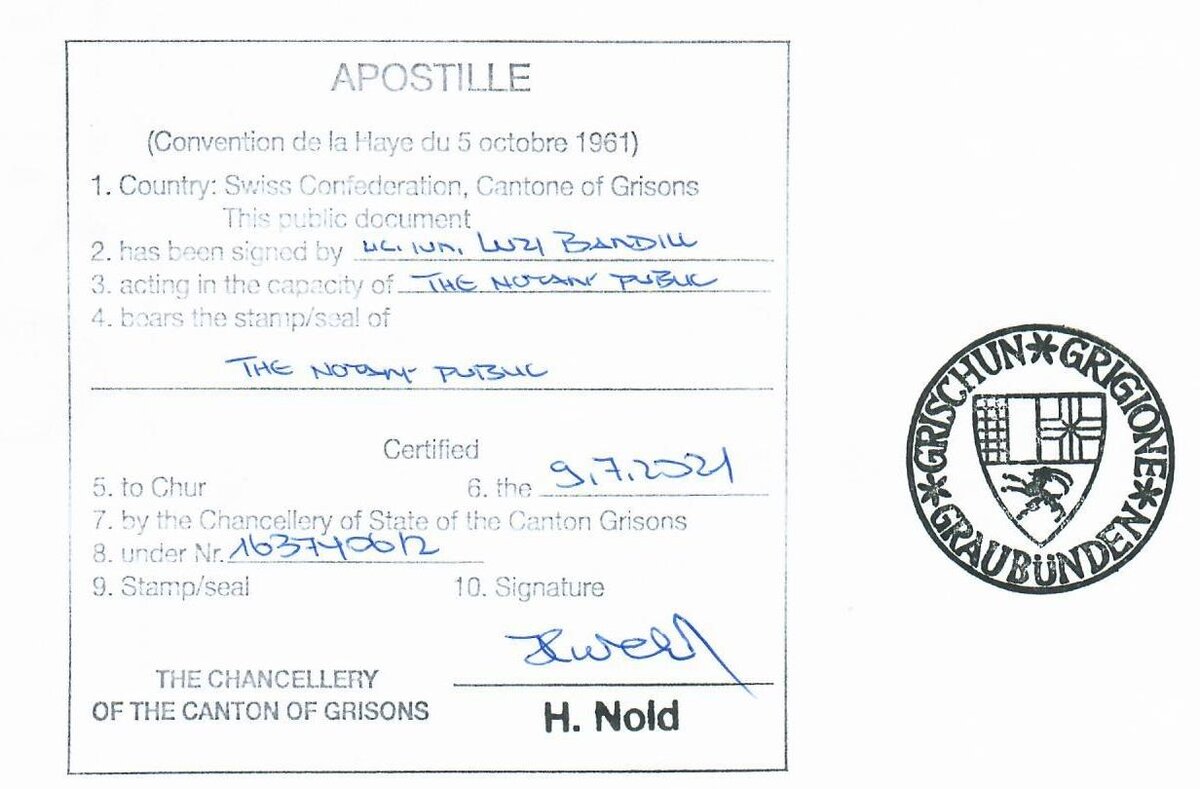 APOSTILLE
(Convention de la Haye du 5 octobre 1961)
1. Country: Swiss Confederation, Cantone of Grisons
This public document
2. has been signed by lic. iur. Luzi BARDILL
3. acting in the capacity of THE NOTARY PUBLIC
4. bears the stamp/seal of
THE NOTARY PUBLIC
Certified
5. to Chur 6. the 9.7.2021
7. by the Chancellery of State of the Canton Grisons
8. under Nr.
9. Stamp/seal 10. Signature
THE CHANCELLERY
OF THE CANTON OF GRISONS
H. Nold
GRISCHUN * GRIGIONE * GRAUBÜNDEN *